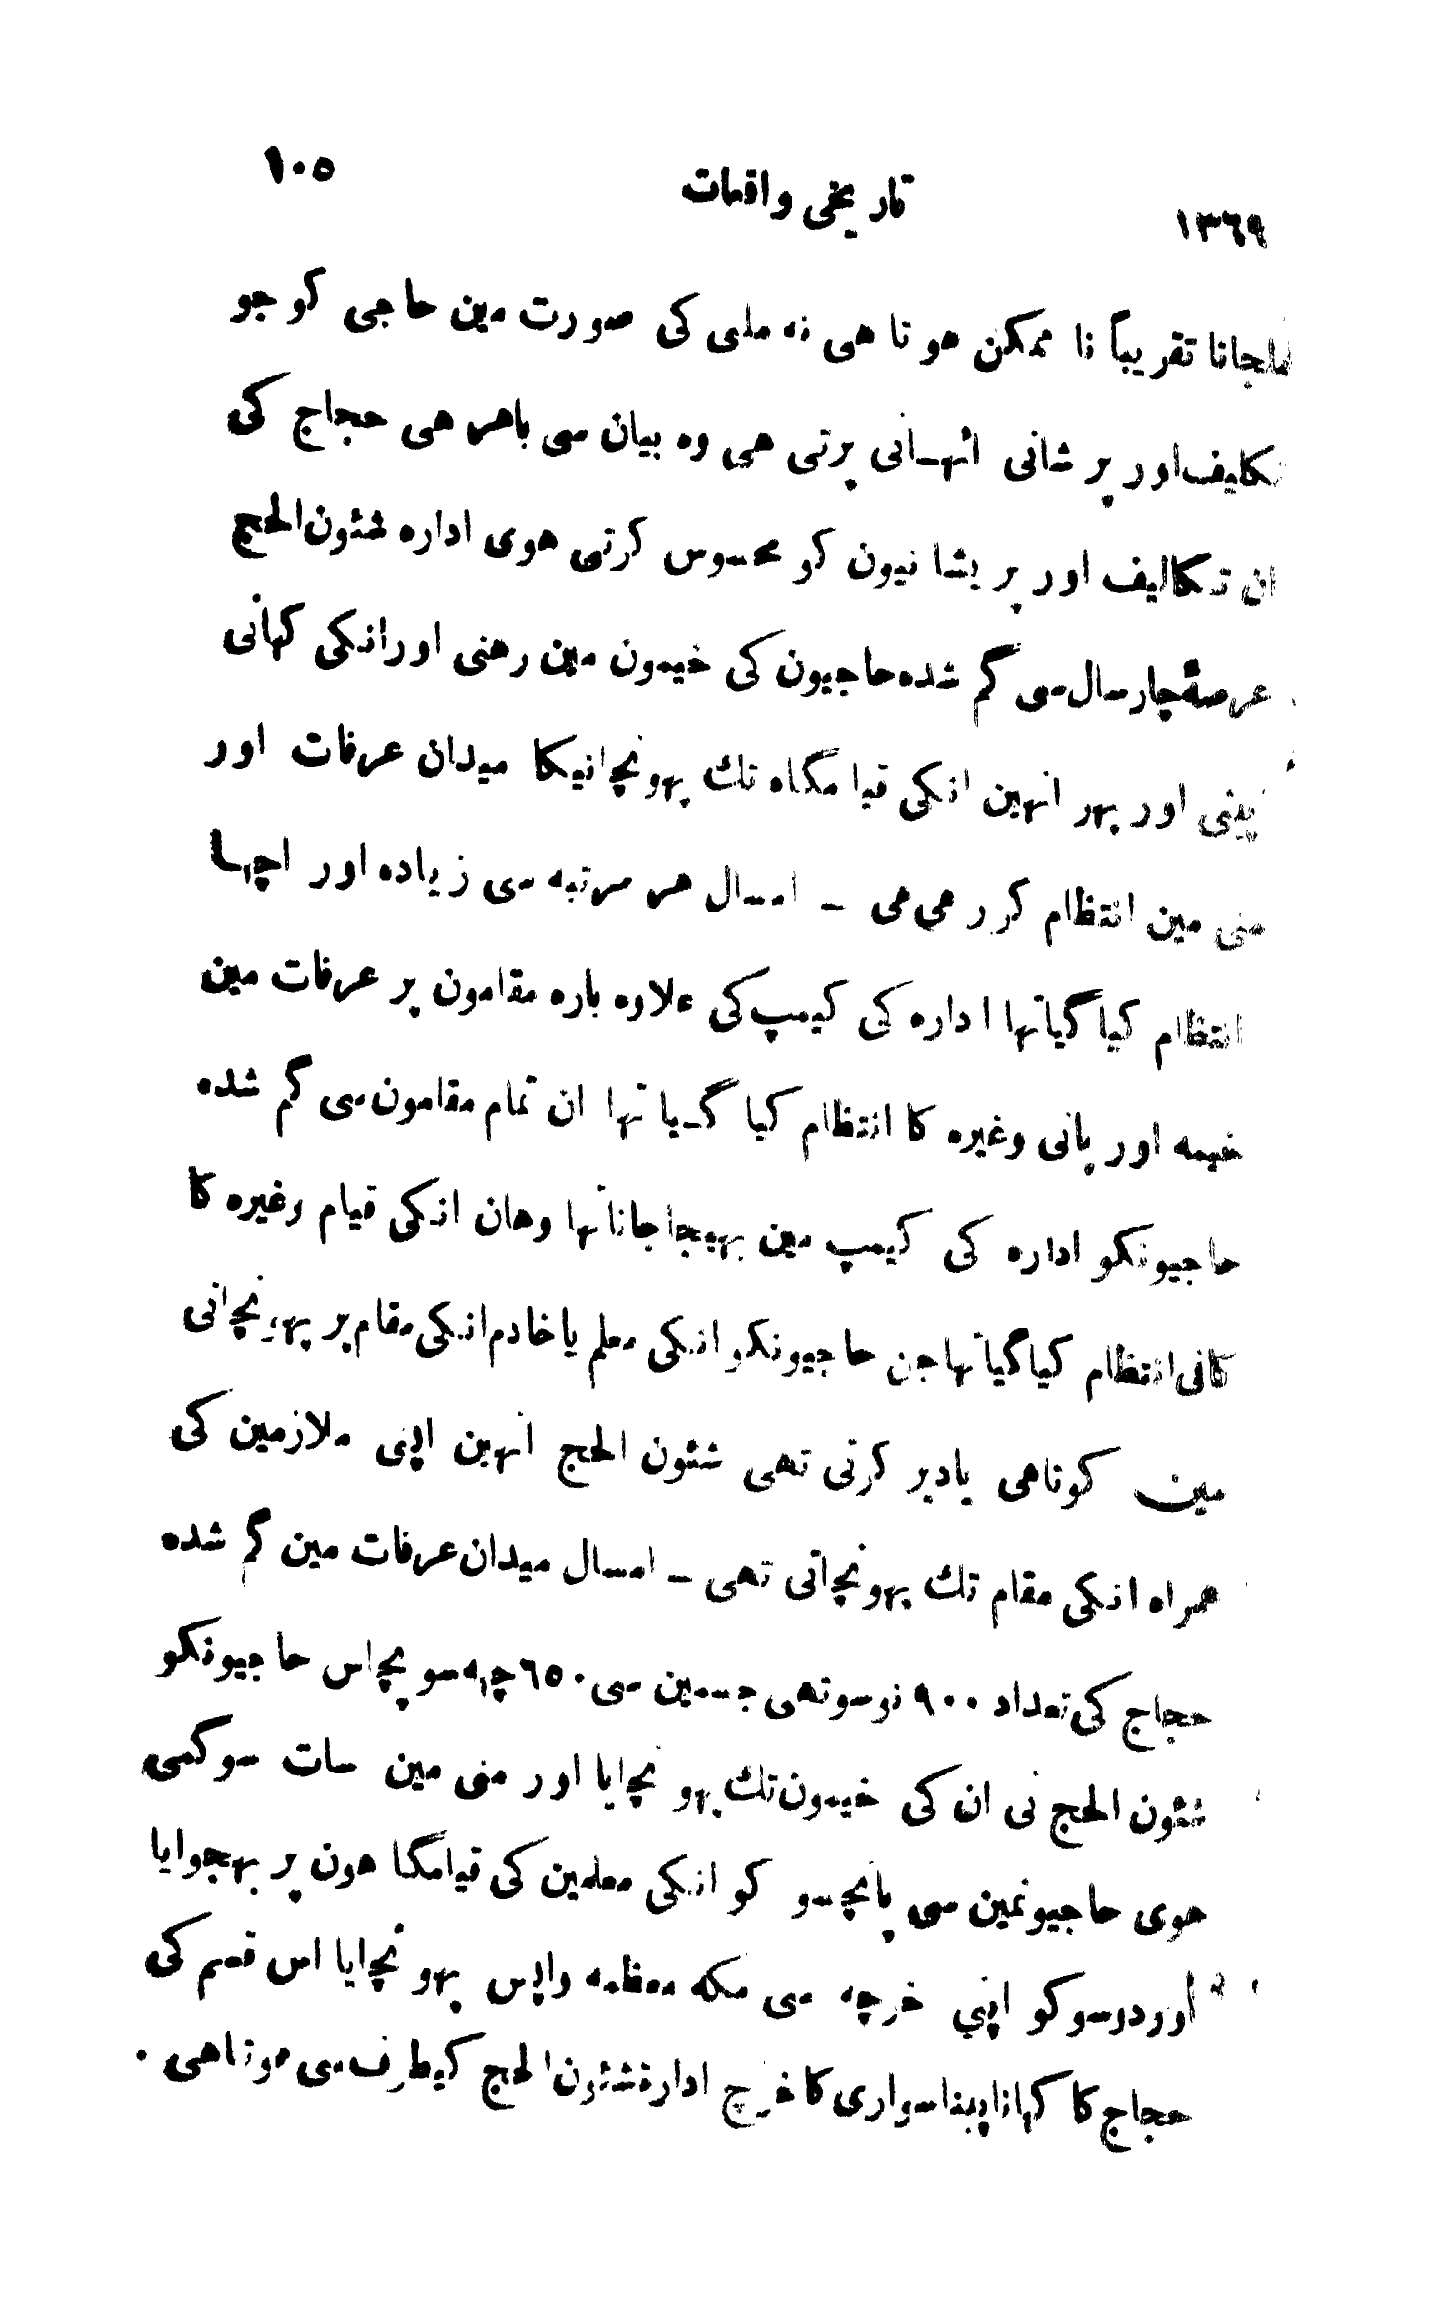 ١٣٦٩ تاریخی واقعات ١٠٥
ملجانا تقریباً نا ممکن هو تا هی نه ملی کی صورت مین حاجی کو جو
تکایف اور پر شانی انهـانی پرتی هی وه بیان سی باهر هی حجاج کی
ان تکالیف اور پر یشا نیون کو محسوس کرتی هوی اداره شئون الحج
عرصهٔ چار سال سی گم شده حاجیون کی خیمون مین رهنی اور انکی کهانی
پینی اور پهر انهین انکی قیا مگاه تك پهونچانیکا میدان عرفات اور
منی مین انتظام کر ر هی هی ـ امسال هر مرتبه سی زیاده اور اچها
انتظام کیا گیا تها اداره کی کیمپ کی علاوه باره مقامون پر عرفات مین
خیمه اور پانی وغیره کا انتظام کیا گـیا تها ان تمام مقامون سی گم شده
حاجیونکو اداره کی کیمپ مین بهیجا جاتا تها وهان انکی قیام وغیره کا
کافی انتظام کیا گیا تها جن حاجیونکو انکی معلم یا خادم انکی مقام پر پهونچانی
مین کوتاهی یا دیر کرتی تهی شئون الحج انهین اپنی ملازمین کی
همراه انکی مقام تك پهونچاتی تهی ـ امسال میدان عرفات مین گم شده
حجاج کی تعداد ٩٠٠ نوسو تهی جسمین سی ٦٥٠ چهه سو پچاس حاجیونکو
شئون الحج نی ان کی خیمون تك پهو نچایا اور منی مین سات سو گمی
هوی حاجیونمین سی پانچسو کو انکی معلمین کی قیامگا هون پر بهجوایا
اور دوسو کو اپنی خرچه سی مکه معظمه واپس پهو نچایا اس قسم کی
حجاج کا کهانا پینا سواری کا خرچ ادارهٔ شئون الحج کیطرف سی هوتا هی ۰